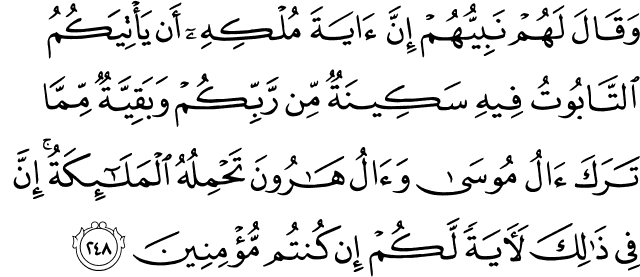 وَقَالَ لَهُمۡ نَبِيُّهُمۡ إِنَّ ءَايَةَ مُلۡكِهِۦٓ أَن يَأۡتِيَكُمُ
ٱلتَّابُوتُ فِيهِ سَكِينَةٞ مِّن رَّبِّكُمۡ وَبَقِيَّةٞ مِّمَّا
تَرَكَ ءَالُ مُوسَىٰ وَءَالُ هَٰرُونَ تَحۡمِلُهُ ٱلۡمَلَٰٓئِكَةُۚ إِنَّ
فِي ذَٰلِكَ لَأٓيَةٗ لَّكُمۡ إِن كُنتُم مُّؤۡمِنِينَ ٢٤٨